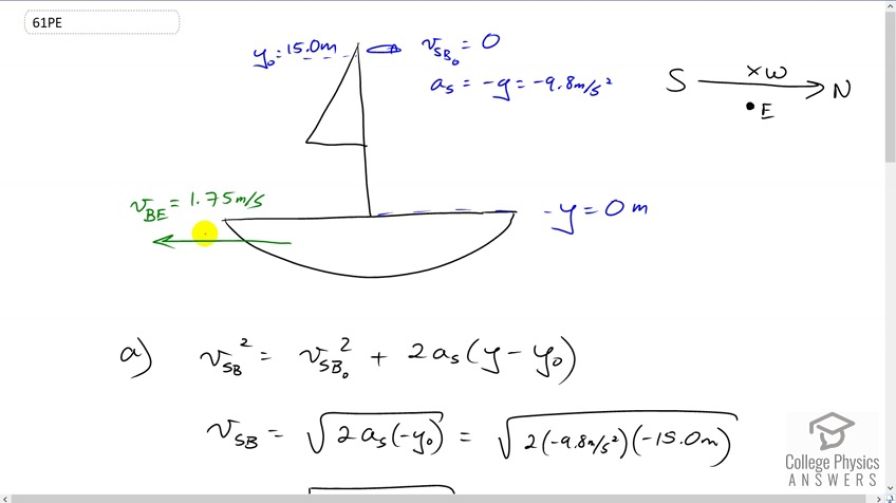 61PE
y₀ = 15.0m v_SB₀ = 0
a_s = -g = -9.8m/s²
S N
×W
•E
v_BE = 1.75m/s
-y = 0 m
a) v_SB² = v_SB₀² + 2a_s(y - y₀)
v_SB = √(2a_s(-y₀)) = √(2(-9.8m/s²)(-15.0m))
College Physics
ANSWERS